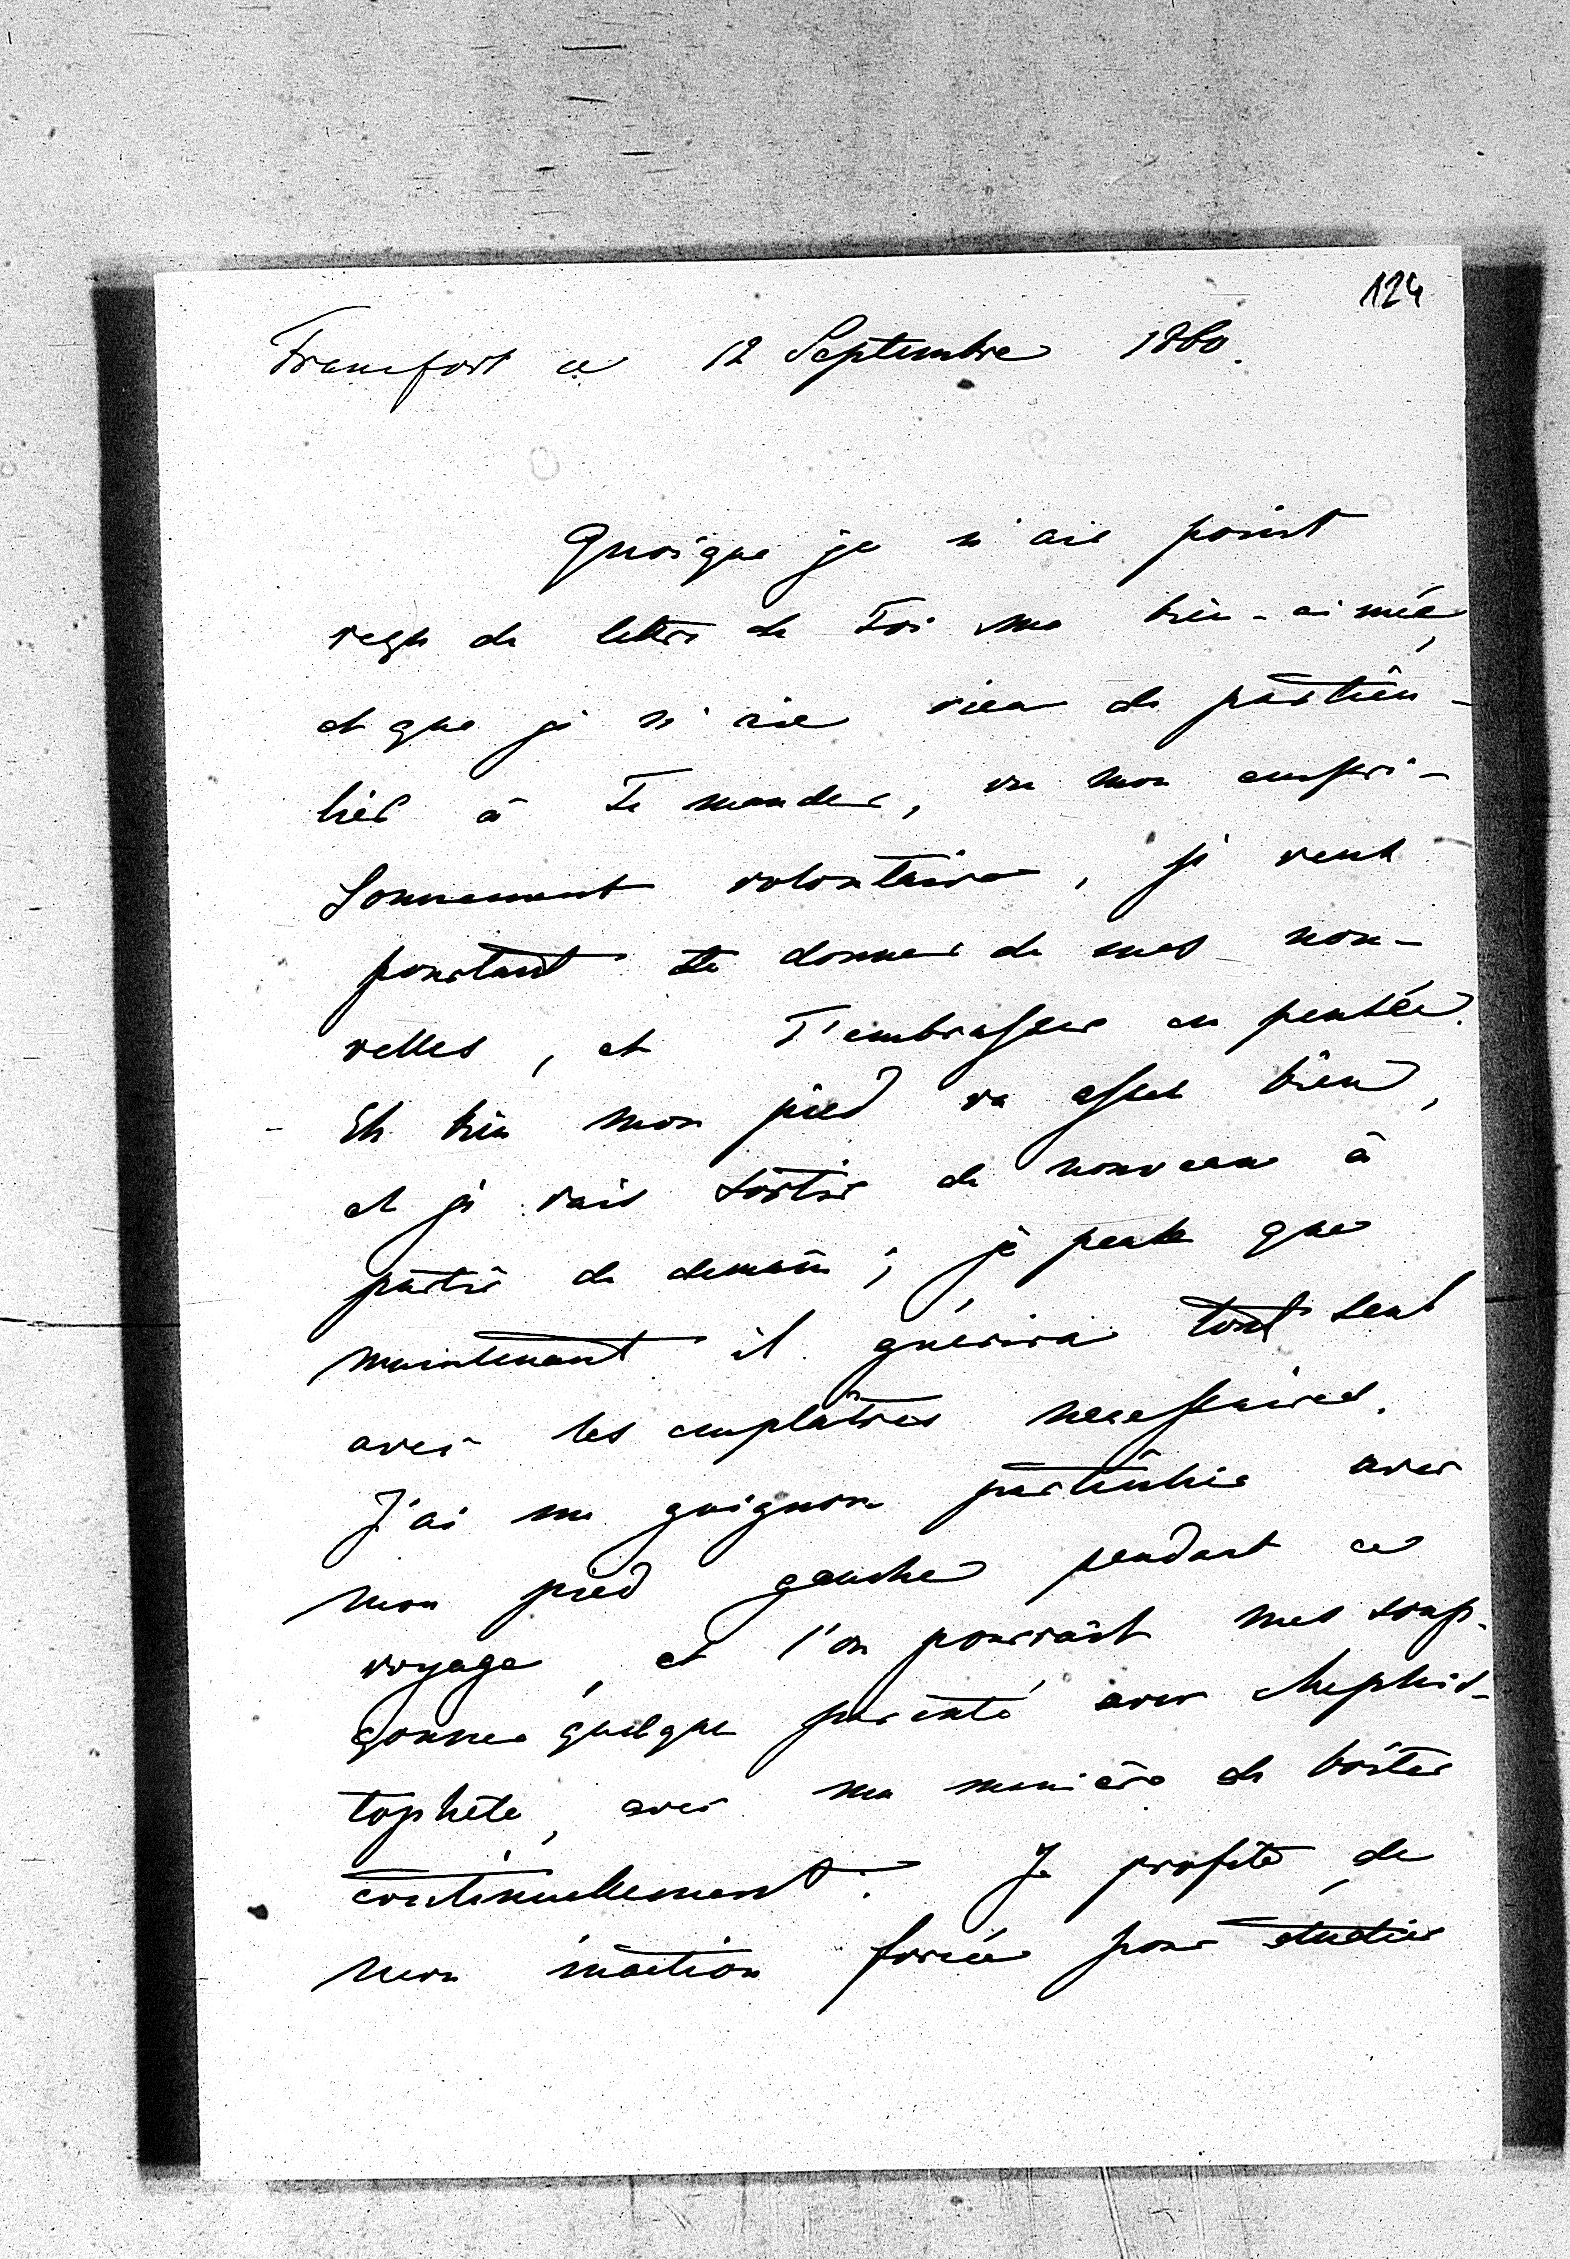 124
Francfort ce 12 Septembre 1860.
Quoique je n'aie point
reçu de lettre de Toi ma bien-aimée,
et que je n'aie rien de particu-
lier à Te mander, vu mon empri-
sonnement volontaire, je veux
pourtant te donner de mes nou-
velles, et T'embrasser en pensée.
Eh bien mon pied va assez bien,
et je vais sortir de nouveau à
partir de demain; je pense que
maintenant il guérira tout seul
avec les emplâtres necessaires.
J'ai un guignon particulier avec
mon pied gauche pendant ce
voyage, et l'on pourrait me soup-
çonner quelque parenté avec Mephis-
tophele, avec ma manière de boiter
continuellement. Je profite de
mon inaction forcée pour étudier